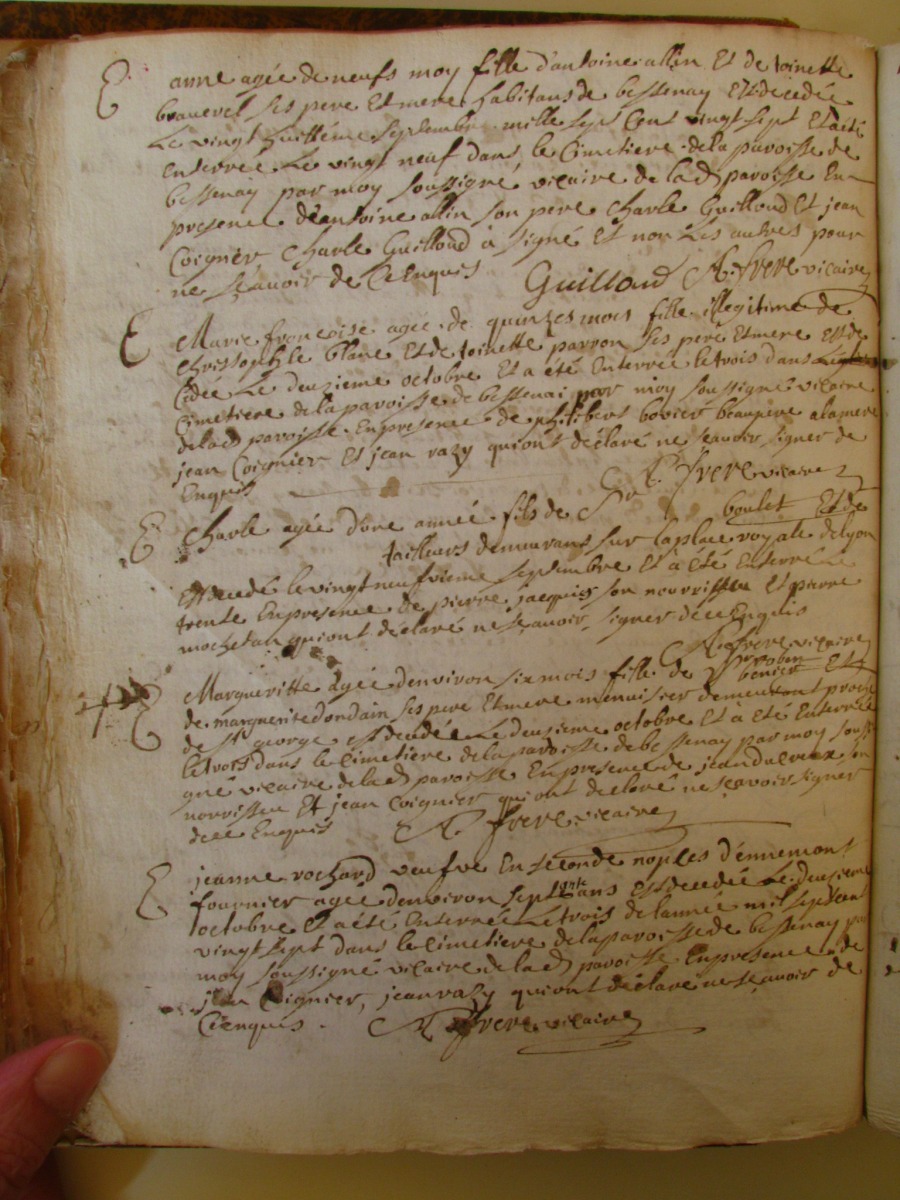 E anne agée de neufs moy fille d'antoine allin Et de toinette
bravevel ses pere Et mere habitans de bessenay Est decedée
Le vingt huittéme septembre mille sept Cent vingt sept Et a été
Enterrée Le vingt neuf dans le Cimetiere de la paroisse de
bessenay par moy soussigné vicaire de lad paroisse En
presence de antoine allin son pere Charle Guilloud Et jean
Coignier Charle Guilloud à signé Et non Les autres pour
ne sçavoir de Ce Enquis Guilloud A. frere vicaire
E Marie françoise agée de quinzes mois fille illegitime de
christophle blanc Et de toinette parron ses pere Et mere Est dé
Cidée Le deuzieme octobre Et a été Enterrée le trois dans
Cimetiere de la paroisse de bessenai par moy soussigné vicaire
de lad paroisse En presence de philibert bovier beaupere a la mere
jean Coignier Et jean razy qui ont déclaré ne sçavoir signer de
Enquis A. frere vicaire
E Charle agée d'une année fils de Sr boulet Et de
tailleurs demeurans sur la place royale de lyon
Est decedé le vingt neufvieme septembre Et à été Enterré le
trente En presence de pierre jacquis son nourrissieu Et pierre
mochetah qui ont déclaré ne sçavoir signer de ce Enquis
A. frere vicaire
E Margueritte agée d'environ six mois fille de Sr robin benier Et
de marguerite dondain ses pere Et mere menuisier demeurant proche
de St george est decedée Le deuxieme octobre Et à eté Enterrée
le trois dans le Cimetiere de la paroisse de bessenay par moy soussi
gné vicaire de lad paroisse En presence de jean dulreux son
norrissieu Et jean Coignier qui ont declaré ne sçavoir signer
de ce Enquis A. frere vicaire
E jeanne rochard veufve En seconde nopces d'ennemont
fournier agée d'environ septante ans Est decedée Le deusieme
octobre Et a été Enterrée Le trois de lannée mil sept cent
vingt sept dans le Cimetiere de la paroisse de bessenay par
moy soussigné vicaire de lad paroisse En presence de
jean Coignier, jean razy qui ont declaré ne sçavoir de
Ce enquis. A. frere vicaire